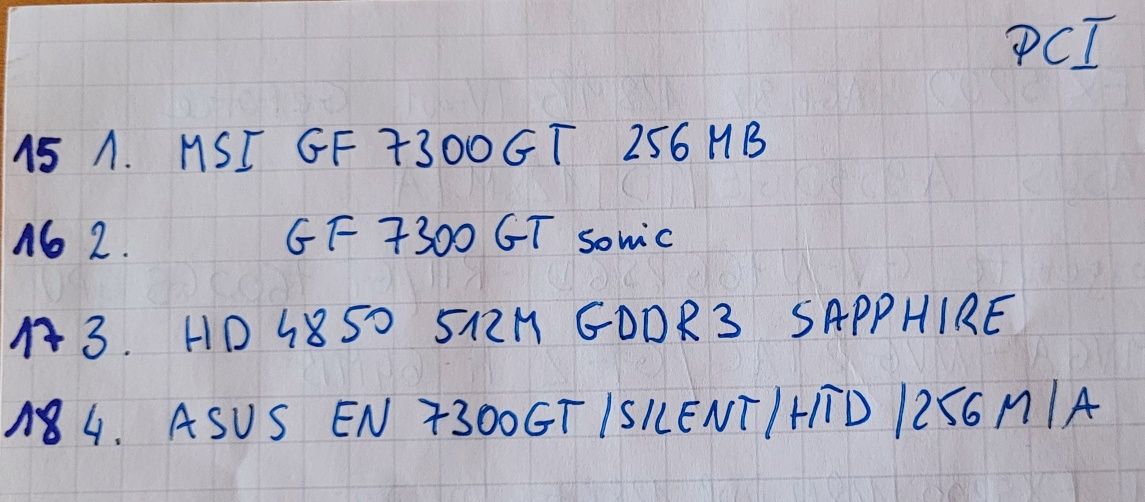 PCI
15 1. MSI GF 7300GT 256 MB
16 2. GF 7300 GT sonic
17 3. HD 4850 512M GDDR3 SAPPHIRE
18 4. ASUS EN 7300GT/SILENT/HTD/256M/A